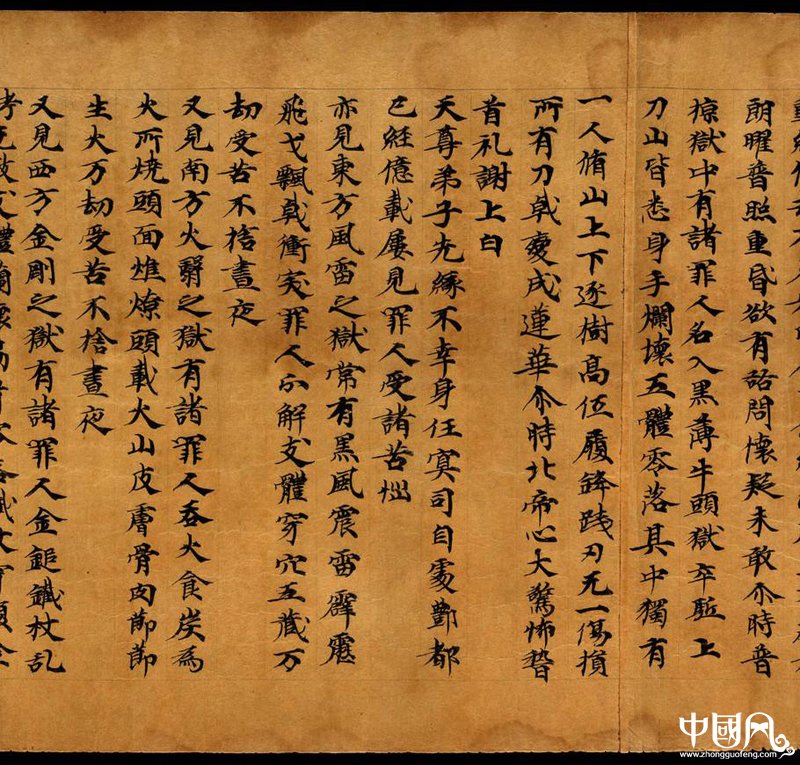 朗曜普照重昏欲有諮問懷疑未敢尒時普
掠獄中有諸罪人名入黑簿牛頭獄卒駈上
刀山皆悉身手爛壞五體零落其中獨有
一人脩山上下逐樹高伍履鋒踐刃无一傷損
所有刀戟變成蓮華尒時北帝心大驚怖稽
首礼謝上白
天尊弟子先緣不幸身任冥司自處酆都
已經億載屢見罪人受諸苦惱
亦見東方風雷之獄常有黑風震雷霹靂
飛戈飄戟衝突罪人分解支體穿穴五藏万
劫受苦不捨晝夜
又見南方火翳之獄有諸罪人吞火食炭為
火所燒頭面燋燎頭載火山皮膚骨肉節節
生火万劫受苦不捨晝夜
又見西方金剛之獄有諸罪人金鎚鐵杖乱
中國风
www.zhongguofeng.com